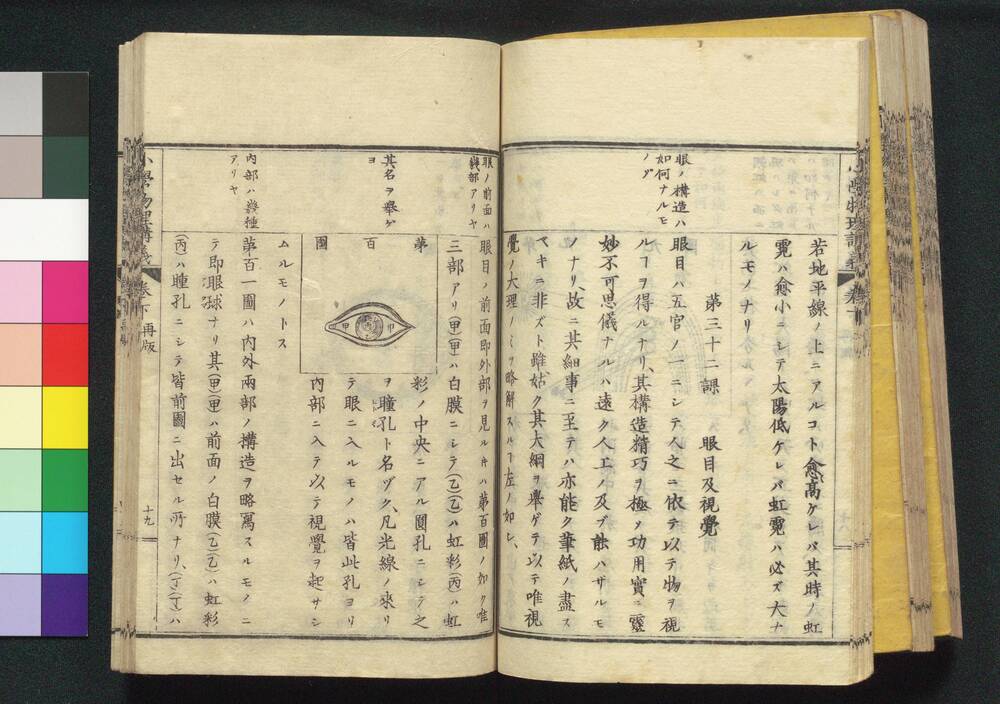 若地平線ノ上ニアルコト愈高ケレバ其時ノ虹
霓ハ愈小ニシテ太陽低ケレバ虹霓ハ必ズ大ナ
ルモノナリ
第三十二課　眼目及視覺
眼ノ構造ハ
如何ナルモ
ノゾ
眼目ハ五官ノ一ニシテ人之ニ依テ以テ物ヲ視
ルヿヲ得ルナリ、其構造精巧ヲ極メ功用實ニ靈
妙不可思儀ナルハ遠ク人工ノ及ブ能ハザルモ
ノナリ、故ニ其細事ニ至テハ亦能ク筆紙ノ盡ス
ベキニ非ズト雖姑ク其大綱ヲ舉ゲテ以テ唯視
覺ノ大理ノミヲ略解スルヿ左ノ如シ、
眼ノ前面ハ
幾部アリヤ
眼目ノ前面即外部ヲ見ルキハ第百圖ノ如ク唯
三部アリ(甲)(甲)ハ白膜ニシテ(乙)(乙)ハ虹彩(丙)ハ虹
其名ヲ舉ゲ
ヨ
第百圖
甲 甲
彩ノ中央ニアル圓孔ニシテ之
ヲ瞳孔ト名ヅク、凡光線ノ來リ
テ眼ニ入ルモノハ皆此孔ヨリ
内部ニ入テ以テ視覺ヲ起サシ
ムルモノトス
内部ハ幾種
アリヤ
第百一圖ハ内外兩部ノ構造ヲ略寫スルモノニ
テ即眼球ナリ其(甲)(甲)ハ前面ノ白膜(乙)(乙)ハ虹彩
(丙)ハ瞳孔ニシテ皆前圖ニ出セル所ナリ、(丁)(丁)ハ
小學物理講義 卷下 再版
十九